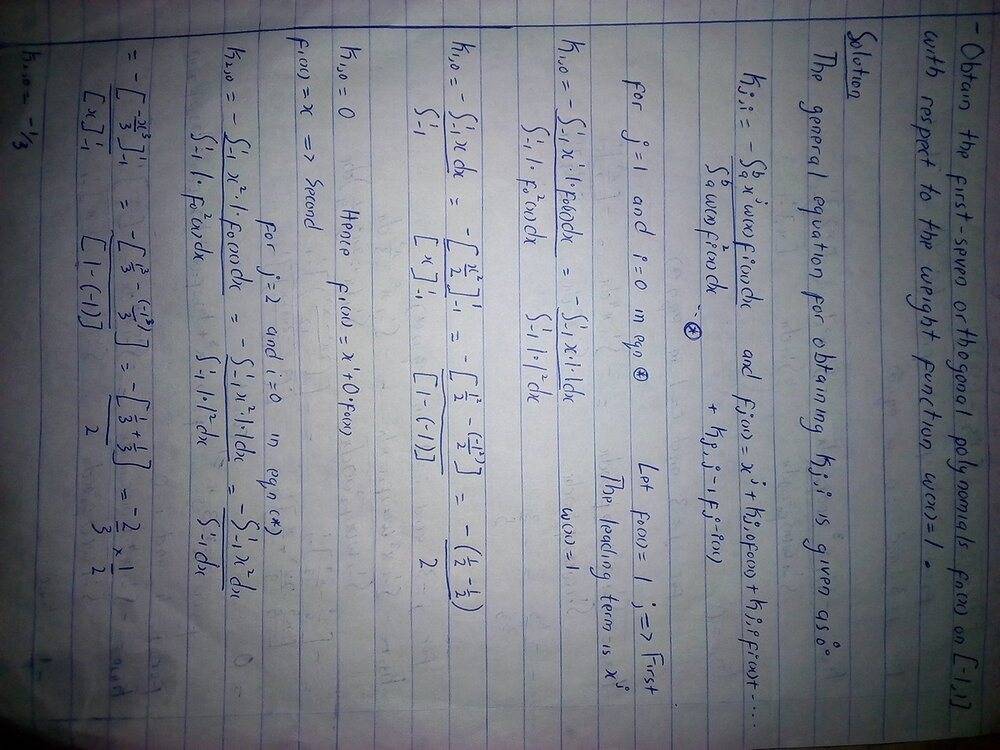 - Obtain the first-seven orthogonal polynomials fn(x) on [-1,1]
with respect to the weight function w(x)=1.
Solution
The general equation for obtaining Kj,i is given as:
Kj,i = -∫ₐᵇ xʲ w(x) fi(x) dx / ∫ₐᵇ w(x) fi²(x) dx and fj(x) = xʲ + Kj,0 f0(x) + Kj,1 f1(x) + ...
+ Kj,j-1 fj-1(x)
⊛
for j=1 and i=0 in eqn ⊛ Let f0(x) = 1 ; => First
The leading term is xʲ
K1,0 = -∫₋₁¹ x¹·1·f0(x)dx / ∫₋₁¹ 1·f0²(x)dx = -∫₋₁¹ x·1·1dx / ∫₋₁¹ 1·1²dx w(x)=1
K1,0 = -∫₋₁¹ x dx / ∫₋₁¹ = -[x²/2]₋₁¹ / [x]₋₁¹ = -[1²/2 - (-1²)/2] / [1-(-1)] = -(1/2 - 1/2) / 2
K1,0 = 0 Hence f1(x) = x¹+0·f0(x)
f1(x) = x => Second
for j=2 and i=0 in eqn (*)
K2,0 = -∫₋₁¹ x²·1·f0(x)dx / ∫₋₁¹ 1·f0²(x)dx = -∫₋₁¹ x²·1·1dx / ∫₋₁¹ 1·1²dx = -∫₋₁¹ x²dx / ∫₋₁¹ dx
= -[-x³/3]₋₁¹ / [x]₋₁¹ = -[1³/3 - (-1³)/3] / [1-(-1)] = -[1/3 + 1/3] / 2 = -2/3 × 1/2
K2,0 = -1/3